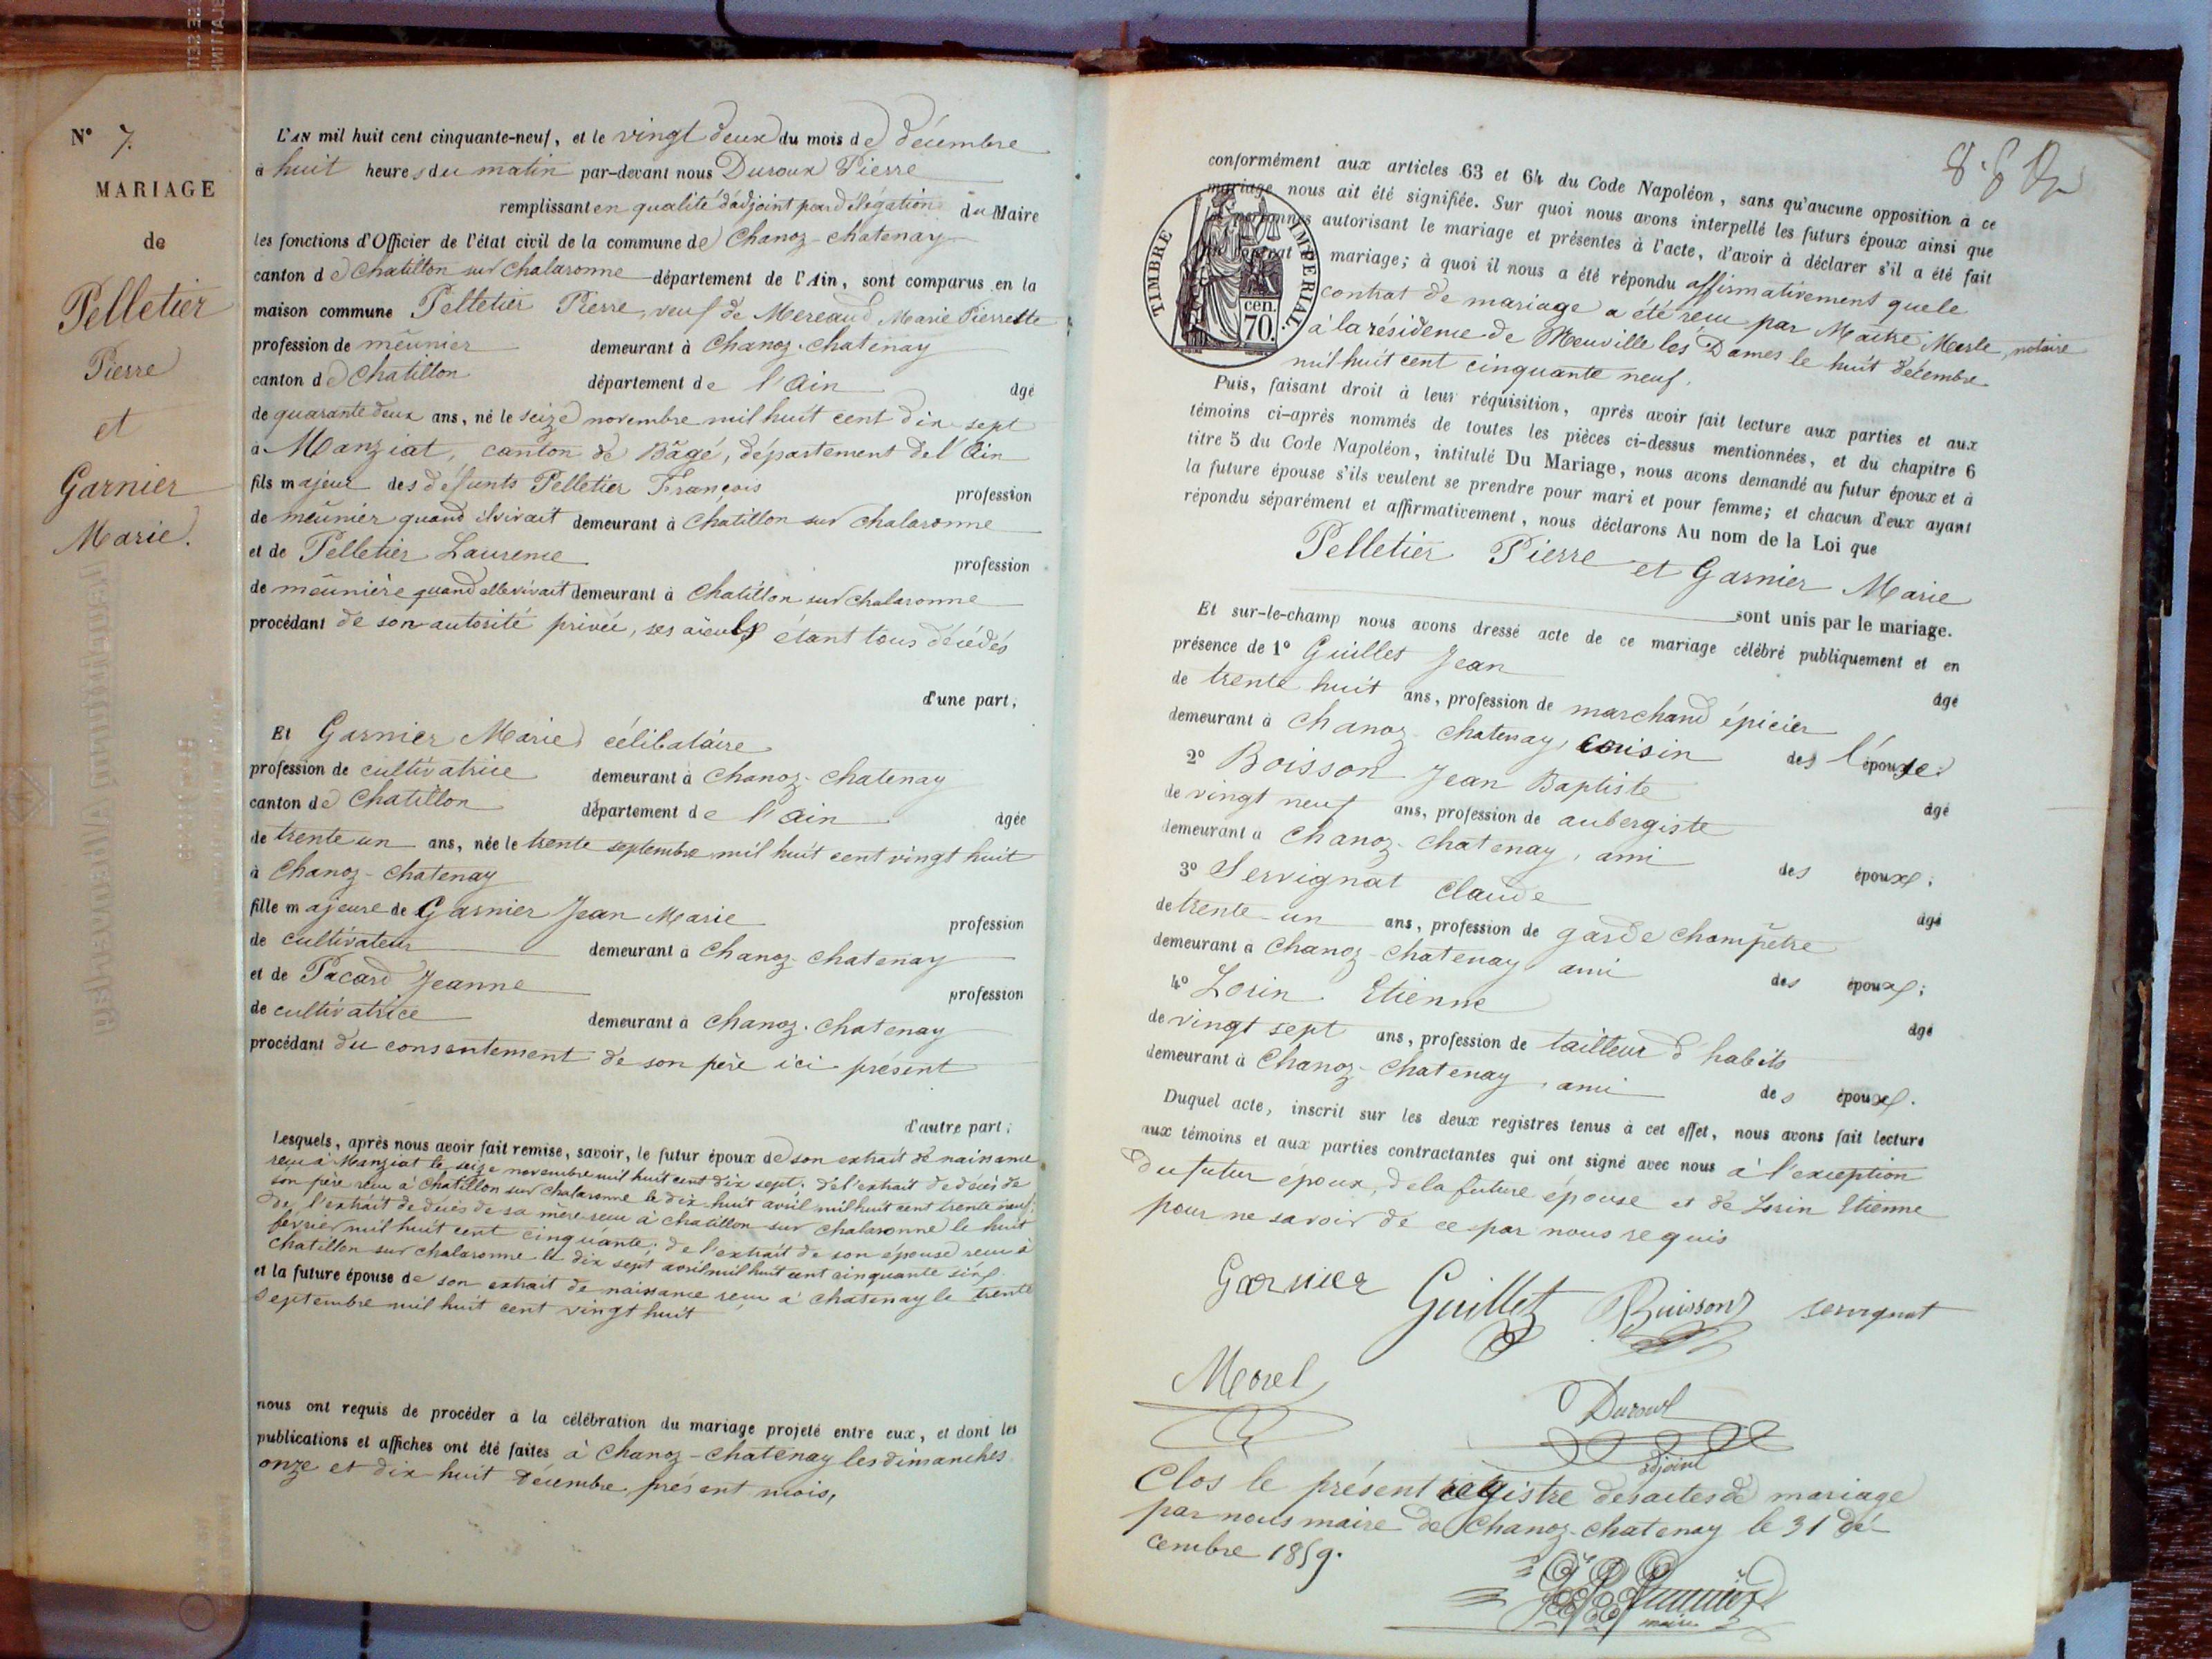 N° 7.
MARIAGE
de
Pelletier
Pierre
et
Garnier
Marie.
L'AN mil huit cent cinquante-neuf, et le vingt deux du mois de décembre
à huit heures du matin par-devant nous Duroux Pierre
remplissant en qualité d'adjoint par délégation du Maire
les fonctions d'Officier de l'état civil de la commune de Chanoz-chatenay
canton de Chatillon sur Chalaronne département de l'Ain, sont comparus en la
maison commune Pelletier Pierre, veuf de Mereaud Marie Pierrette
profession de meûnier demeurant à Chanoz-chatenay
canton de Chatillon département de l'Ain âgé
de quarante deux ans, né le seize novembre mil huit cent dix sept
à Manziat, canton de Bâgé, département de l'Ain
fils majeur des défunts Pelletier François profession
de meûnier quand il vivait demeurant à Chatillon sur Chalaronne
et de Pelletier Laurence profession
de meûnière quand elle vivait demeurant à Chatillon sur Chalaronne
procédant de son autorité privée, ses aïeuls étant tous décédés
d'une part;
Et Garnier Marie célibataire
profession de cultivatrice demeurant à Chanoz-chatenay
canton de Chatillon département de l'Ain âgée
de trente un ans, née le trente septembre mil huit cent vingt huit
à Chanoz-chatenay
fille majeure de Garnier Jean Marie profession
de cultivateur demeurant à Chanoz-chatenay
et de Pacard Jeanne profession
de cultivatrice demeurant à Chanoz-chatenay
procédant du consentement de son père ici présent
d'autre part;
Lesquels, après nous avoir fait remise, savoir, le futur époux de son extrait de naissance
reçu à Manziat le seize novembre mil huit cent dix sept. de l'extrait de décès de
son père reçu à Chatillon sur Chalaronne le dix huit avril mil huit cent trente neuf;
de l'extrait de décès de sa mère reçu à chatillon sur chalaronne le huit
février mil huit cent cinquante; de l'extrait de son épouse reçu à
Chatillon sur chalaronne le dix sept avril mil huit cent cinquante
et la future épouse de son extrait de naissance reçu à chatenay le trente
septembre mil huit cent vingt huit
nous ont requis de procéder à la célébration du mariage projeté entre eux, et dont les
publications et affiches ont été faites à Chanoz-Chatenay les dimanches
onze et dix huit décembre présent mois,
conformément aux articles 63 et 64 du Code Napoléon, sans qu'aucune opposition à ce
mariage nous ait été signifiée. Sur quoi nous avons interpellé les futurs époux ainsi que
personnes autorisant le mariage et présentes à l'acte, d'avoir à déclarer s'il a été fait
mariage; à quoi il nous a été répondu affirmativement que le
contrat de mariage a été reçu par Maître Merle, notaire
à la résidence de Neuville les Dames le huit décembre
mil huit cent cinquante neuf.
TIMBRE IMPERIAL.
cen.
70.
Puis, faisant droit à leur réquisition, après avoir fait lecture aux parties et aux
témoins ci-après nommés de toutes les pièces ci-dessus mentionnées, et du chapitre 6
titre 5 du Code Napoléon, intitulé Du Mariage, nous avons demandé au futur époux et à
la future épouse s'ils veulent se prendre pour mari et pour femme; et chacun d'eux ayant
répondu séparément et affirmativement, nous déclarons Au nom de la Loi que
Pelletier Pierre et Garnier Marie
sont unis par le mariage.
Et sur-le-champ nous avons dressé acte de ce mariage célébré publiquement et en
présence de 1° Guillet Jean âgé
de trente huit ans, profession de marchand épicier
demeurant à Chanoz-chatenay, cousin de l'épouse;
2° Boisson Jean Baptiste âgé
de vingt neuf ans, profession de aubergiste
demeurant à Chanoz-chatenay, ami des époux;
3° Servignat Claude âgé
de trente-un ans, profession de garde champêtre
demeurant à Chanoz-chatenay ami des époux;
4° Lorin Etienne âgé
de vingt sept ans, profession de tailleur d'habits
demeurant à Chanoz-Chatenay, ami des époux.
Duquel acte, inscrit sur les deux registres tenus à cet effet, nous avons fait lecture
aux témoins et aux parties contractantes qui ont signé avec nous à l'exception
du futur époux, de la future épouse et de Lorin Etienne
pour ne savoir de ce par nous requis
Garnier Guillet Buisson servignat
Morel Duroux
adjoint
Clos le présent registre des actes de mariage
par nous maire de Chanoz-chatenay le 31 dé-
cembre 1859.
maire